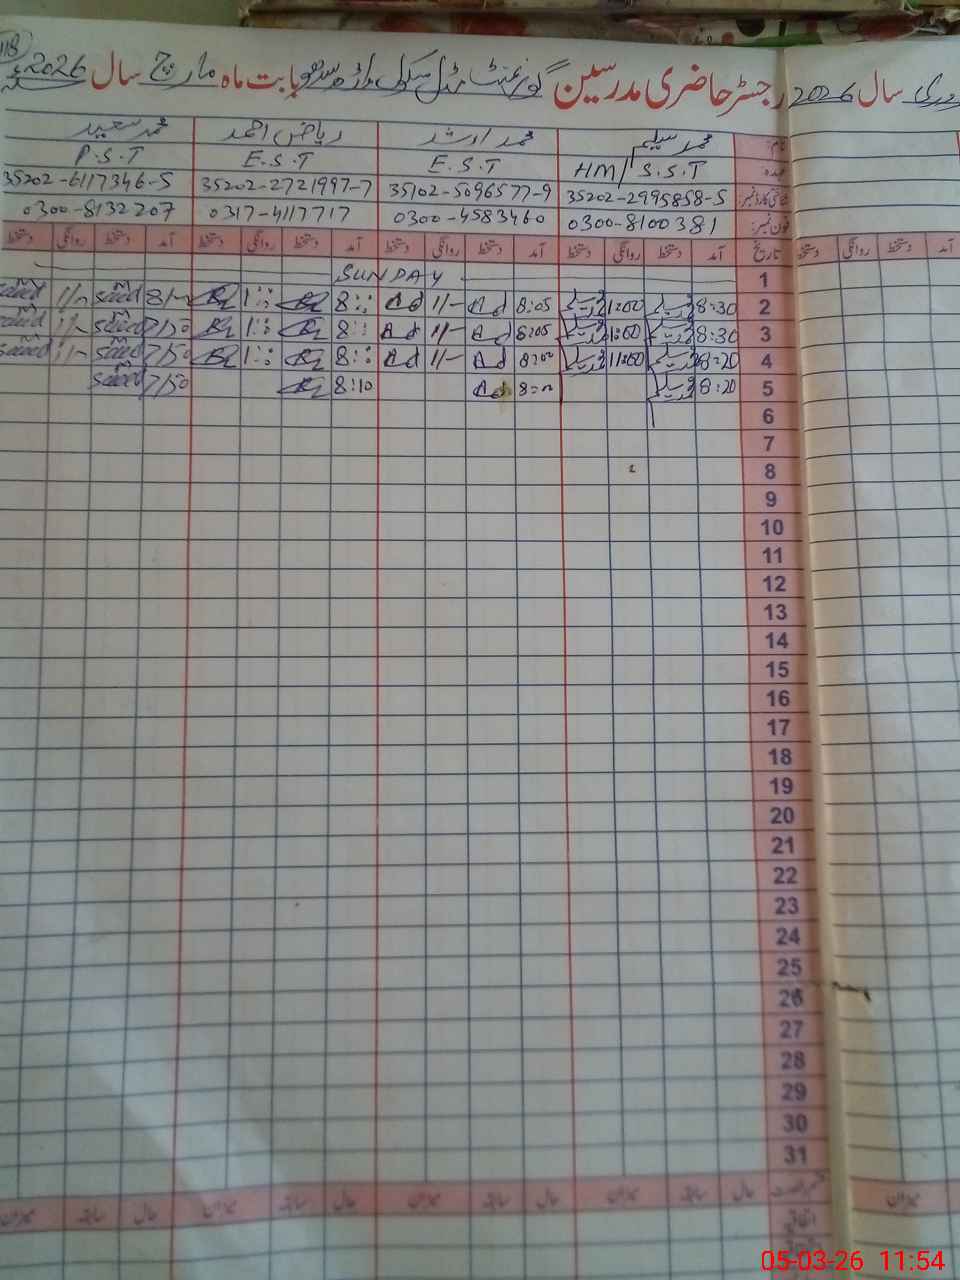 رجسٹر حاضری مدرسین گورنمنٹ مڈل سکول بابت ماہ مارچ سال 2026
سال 2026
118
نام: محمد سلیم محمد ارشد ریاض احمد محمد سعید
عہدہ HM/S.S.T E.S.T E.S.T P.S.T
شناختی کارڈ نمبر: 35202-2995858-5 35102-5096577-9 35202-2721997-7 35202-6117346-5
فون نمبر: 0300-8100381 0300-4583460 0317-4117717 0300-8132207
تاریخ آمد دستخط روانگی دستخط آمد دستخط روانگی دستخط آمد دستخط روانگی دستخط آمد دستخط روانگی دستخط
آمد دستخط روانگی دستخط
1 SUNDAY
2 8:30 1:00 8:05 Ad 11/- Ad 8:: 1:: 8/- saeed 11/- saeed
3 8:30 1:00 8:05 Ad 11/- Ad 8:: 1:: 7/50 saeed 11/- saeed
4 8:20 11:00 8:00 Ad 11/- Ad 8:: 1:: 7/50 saeed 11/- saeed
5 8:20 8:00 Ad 8:10 7/50 saeed
6
7
8
9
10
11
12
13
14
15
16
17
18
19
20
21
22
23
24
25
26
27
28
29
30
31
حال سابقہ میزان حال سابقہ میزان حال سابقہ میزان حال سابقہ میزان
میزان
اتفاقیہ
05-03-26 11:54